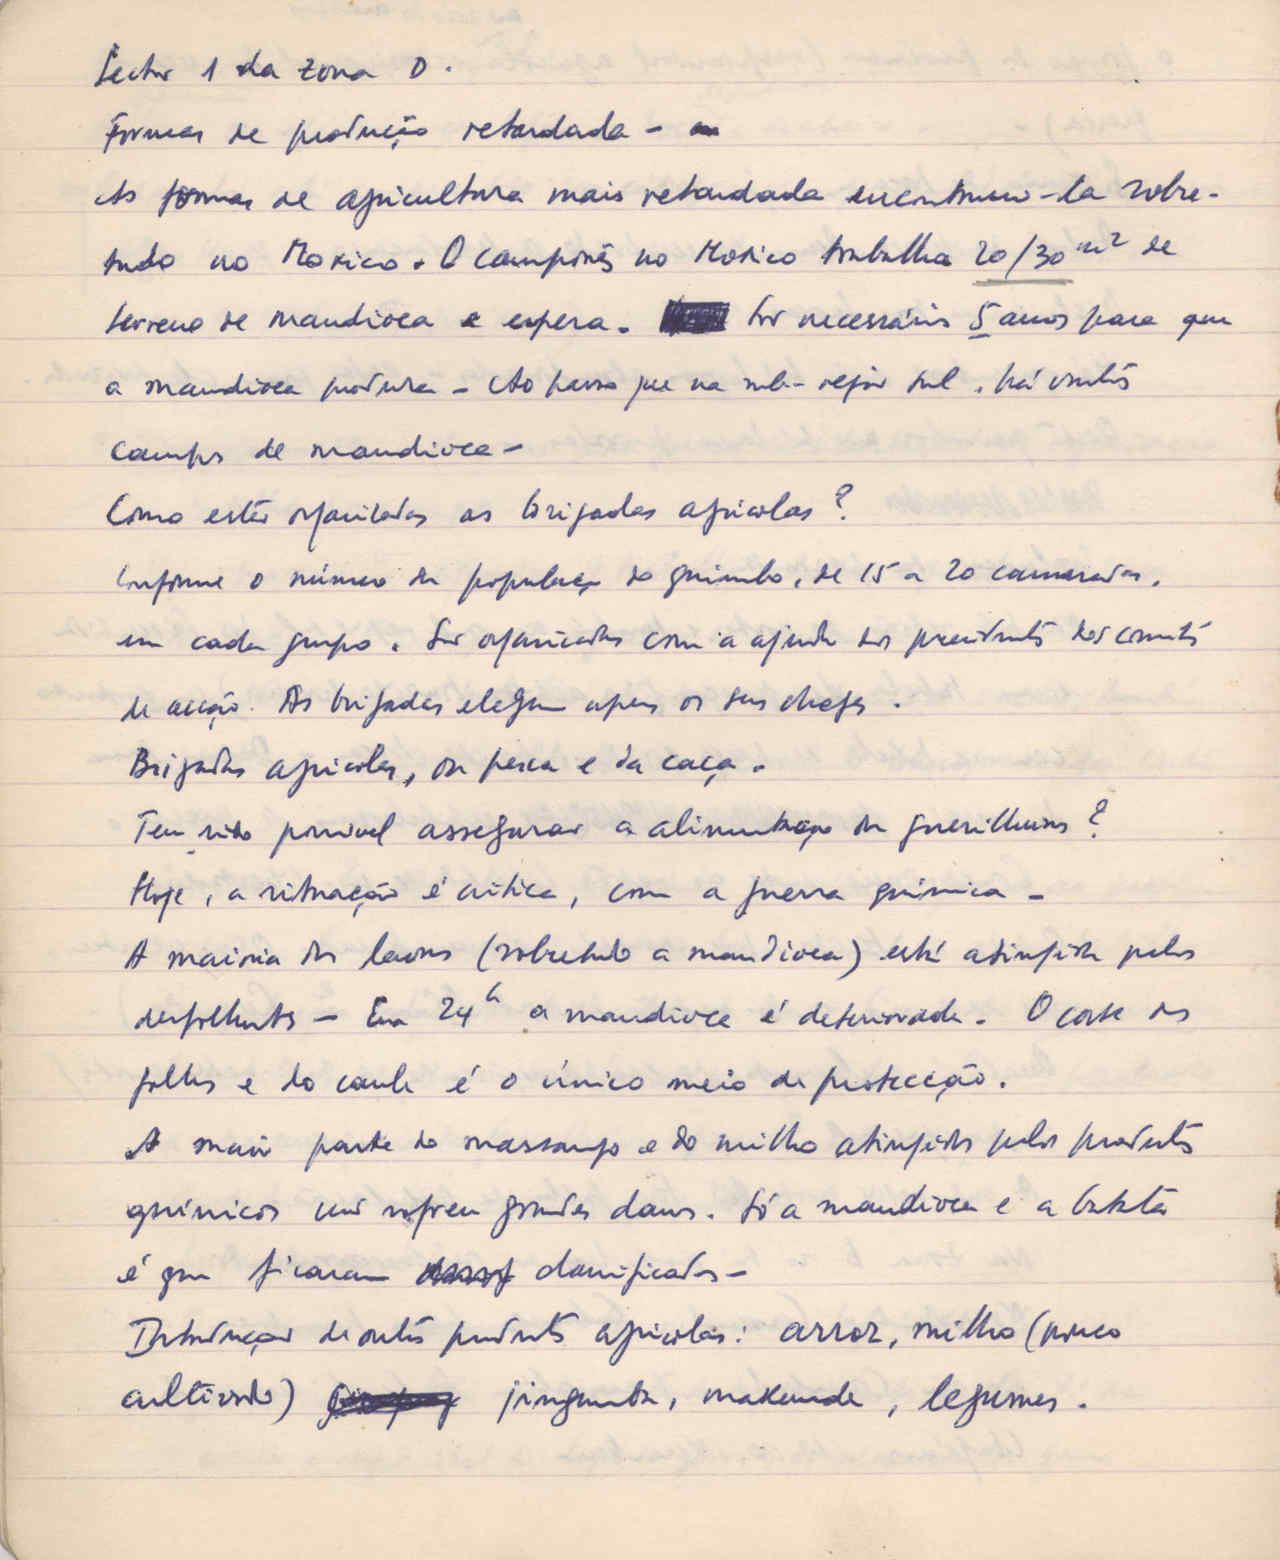 Sector 1 da zona D.
Formas de produção retardada -
As formas de agricultura mais retardada encontramo-la sobre-
tudo no Moxico. O camponês no Moxico trabalha 20/30 m² de
terreno de mandioca e espera. São necessários 5 anos para que
a mandioca produza - Ao passo que na sub-região sul, há muitos
campos de mandioca -
Como estão organizadas as brigadas agrícolas?
Conforme o número da população do quimbo, de 15 a 20 camaradas,
em cada grupo. São organizadas com a ajuda dos presidentes dos comités
de acção. As brigadas elegem os seus chefes.
Brigadas agrícolas, da pesca e da caça.
Tem sido possivel assegurar a alimentação da guerrilheiros?
Hoje, a situação é critica, com a guerra química -
A maioria das lavras (sobretudo a mandioca) está atingida pelos
desfolhantes - Em 24h a mandioca é deteriorada. O corte das
folhas e do caule é o único meio de protecção.
A maior parte do massango e do milho atingidos pelos produtos
químicos não sofreu grandes danos. Só a mandioca e a batata
é que ficaram danificadas -
Introdução de outros produtos agricolas: arroz, milho (pouco
cultivado) jinguba, makunde, legumes.